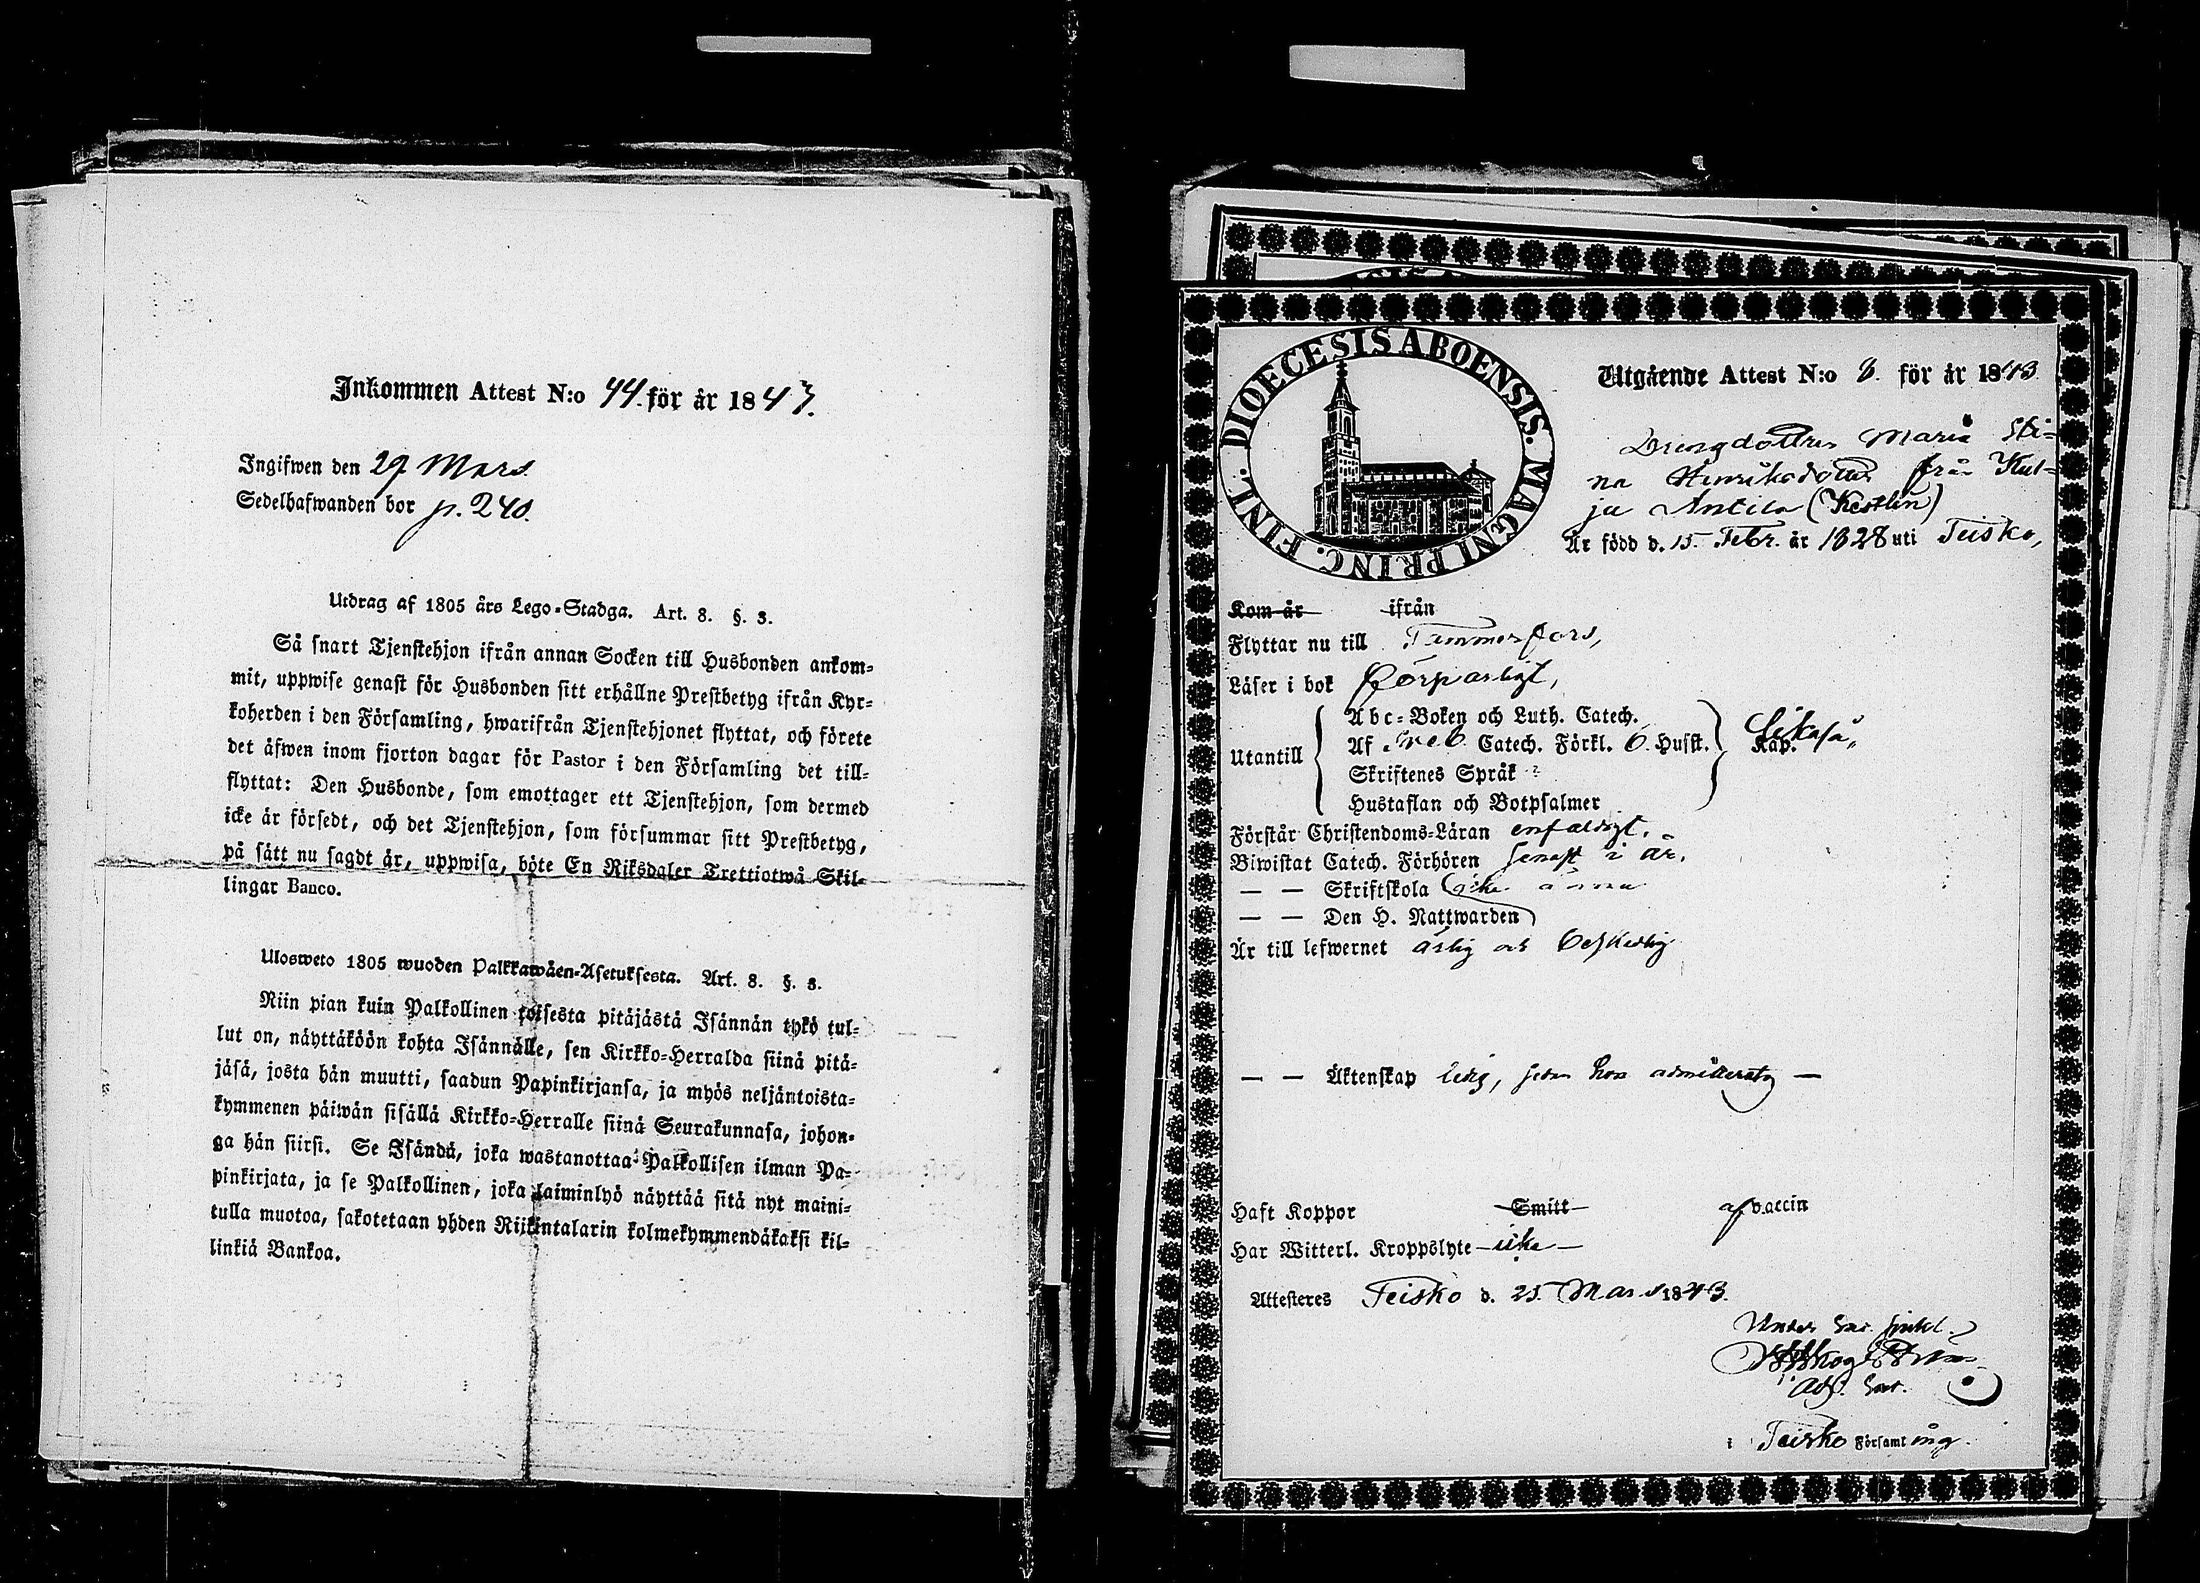 Inkommen Attest N:o 44. för år 1843.
Ingifwen den 29 Mars.
Sedelhafwanden bor p. 240.
Utdrag af 1805 års Lego-Stadga. Art. 8. §. 3.
Så snart Tjenstehjon ifrån annan Socken till Husbonden ankom-
mit, uppwise genast för Husbonden sitt erhållne Prestbetyg ifrån Kyr-
koherden i den Församling, hwarifrån Tjenstehjonet flyttat, och förete
det äfwen inom fjorton dagar för Pastor i den Församling det till-
flyttat: Den Husbonde, som emottager ett Tjenstehjon, som dermed
icke är försedt, och det Tjenstehjon, som försummar sitt Prestbetyg,
på sätt nu sagdt är, uppwisa, böte En Riksdaler Trettiotwå Skil-
lingar Banco.
Ulosweto 1805 wuoden Palkkawäen-Asetuksesta. Art. 8. §. 3.
Niin pian kuin Palkollinen toisesta pitäjästä Isännän tykö tul-
lut on, näyttäköön kohta Isännälle, sen Kirkko-Herralda siinä pitä-
jäsä, josta hän muutti, saadun Papinkirjansa, ja myös neljäntoista-
kymmenen päiwän sisällä Kirkko-Herralle siinä Seurakunnasa, johon-
ga hän siirsi. Se Isändä, joka wastanottaa Palkollisen ilman Pa-
pinkirjata, ja se Palkollinen, joka laiminlyö näyttää sitä nyt maini-
tulla muotoa, sakotetaan yhden Riikintalarin kolmekymmendäkaksi kil-
linkiä Bankoa.
DIOECESIS ABOENSIS. MAGNI PRINC. FINL.
Utgående Attest N:o 8. för år 1843
Drengdottren Maria Sti-
na Henriksdotter från Kul-
ju Antila (Kestlin)
Är född d. 15. Febr. år 1828 uti Teisko,
Kom år ifrån
Flyttar nu till Tammerfors,
Läser i bok försvarligt,
Utantill
Abc-Boken och Luth. Catech.
Af Sveb. Catech. Förkl. 6. Husst. Kap. likaså,
Skriftenes Språk
Hustaflan och Botpsalmer
Förstår Christendoms-Läran enfaldigt.
Biwistat Catech. Förhören senast i år.
— — Skriftskola icke ännu
— — Den H. Nattwarden
Är till lefwernet ärlig och beskedlig
— — Äktenskap ledig, sedan hon admitterats —
Haft Koppor Smitt af vaccin
Har Witterl. Kroppslyte — icke —
Attesteres Teisko d. 25. Mars 1843.
Adj. Sac.
i Teisko Församling.